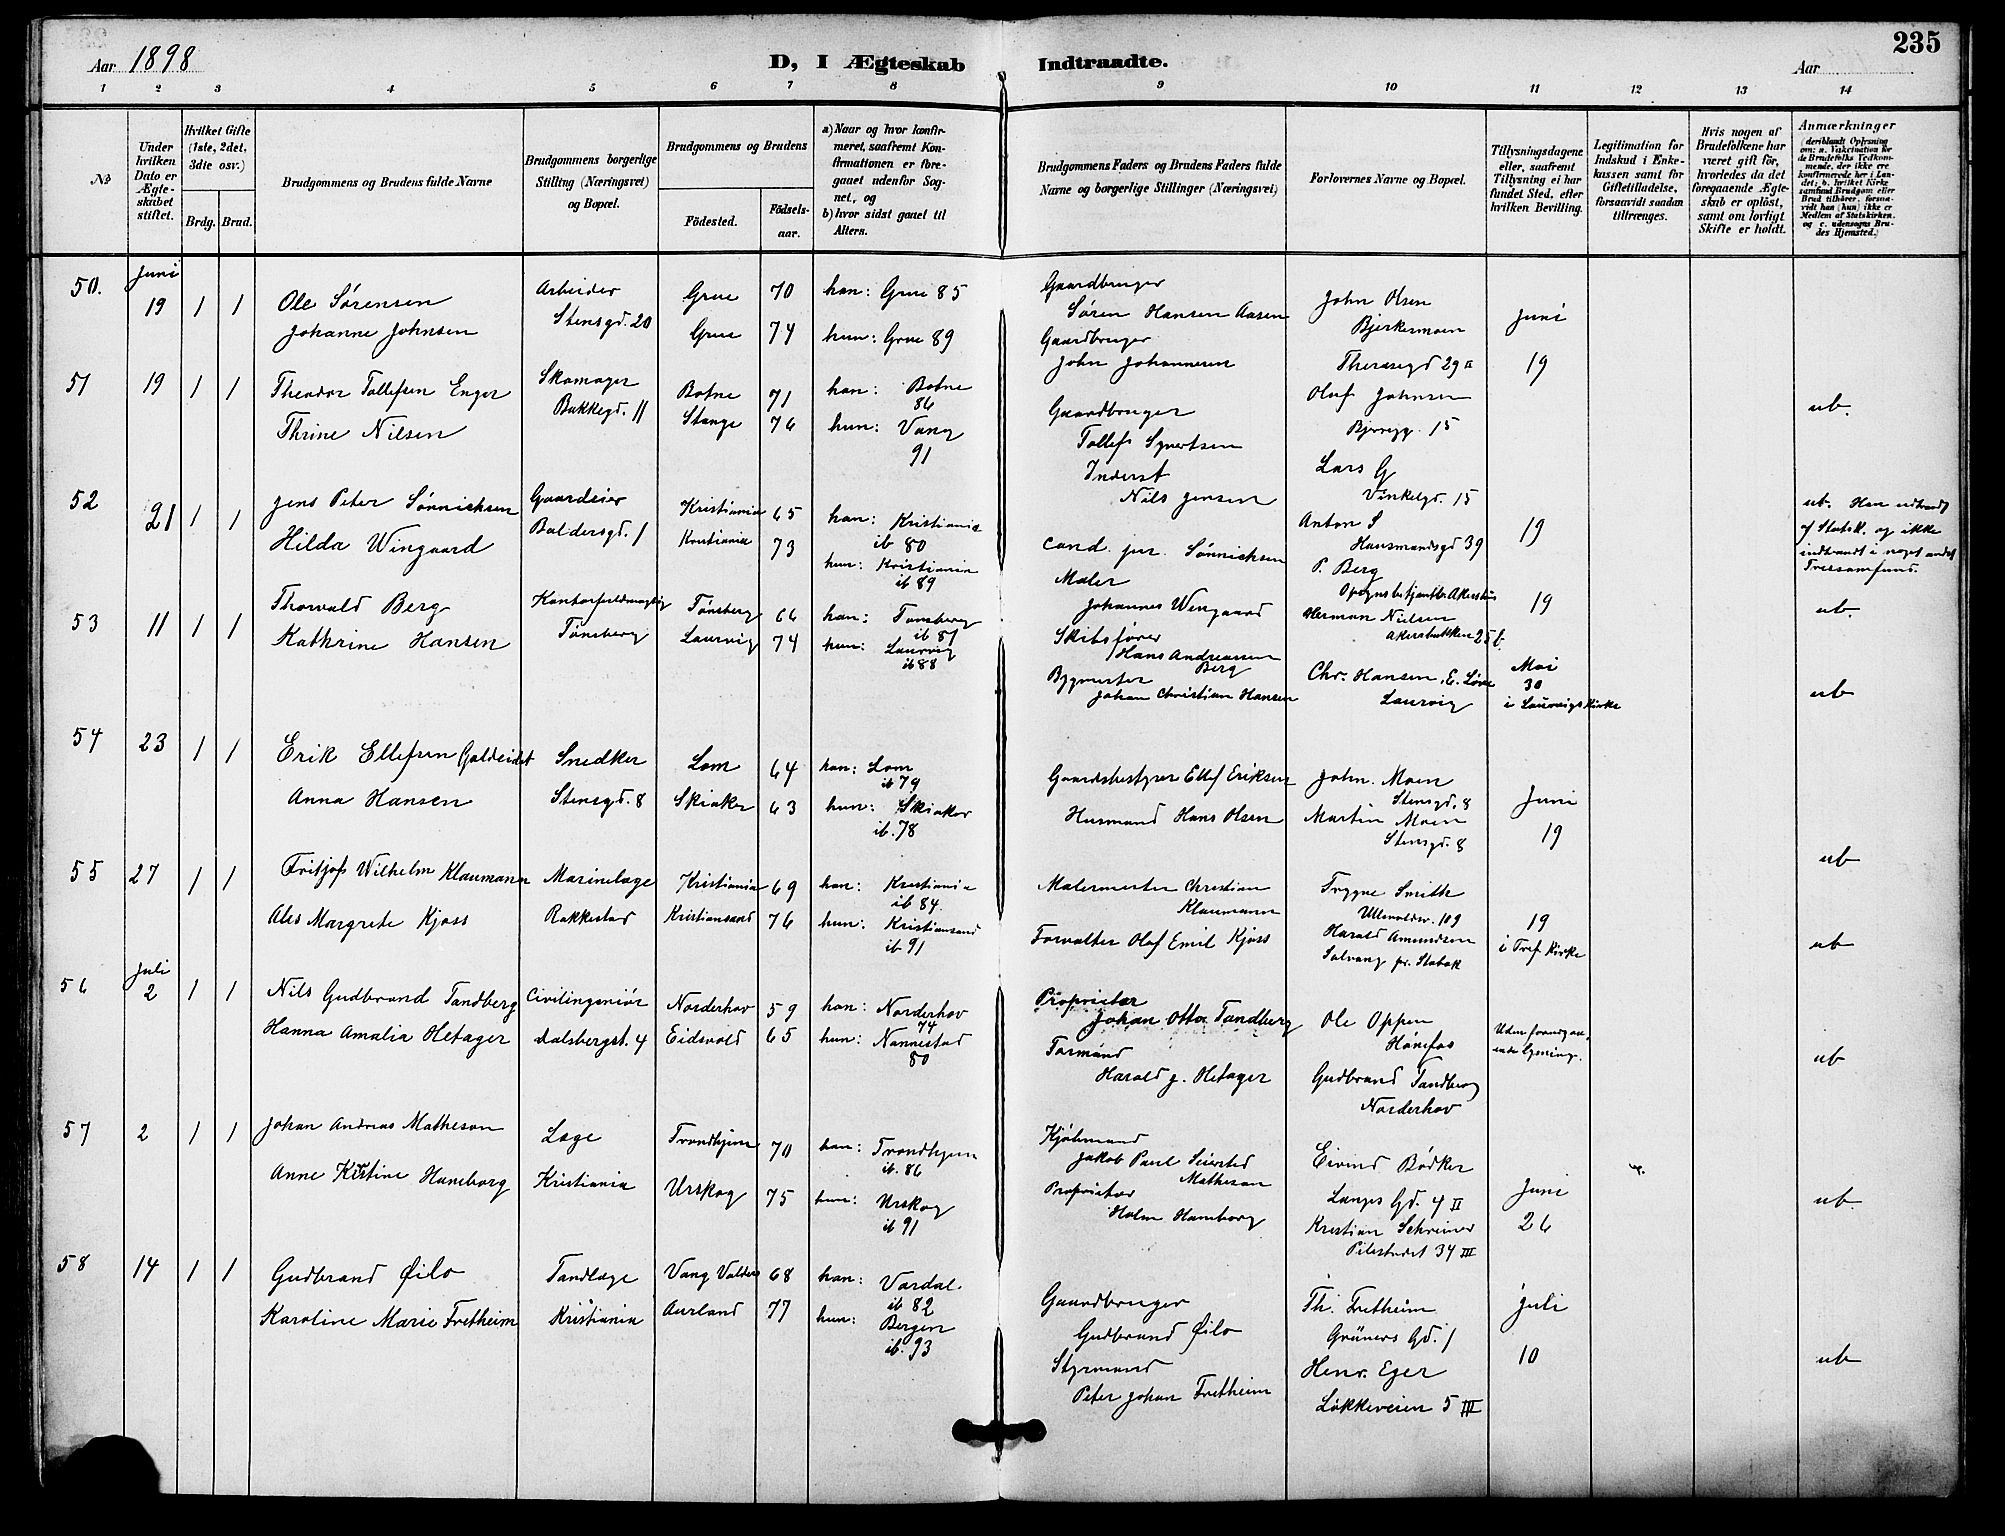 235
Aar 1898
D, I Ægteskab Indtraadte.
Aar
1 2 3 4 5 6 7 8 9 10 11 12 13 14
No
Under hvilken Dato er Ægteskabet stiftet.
Hvilket Gifte (1ste, 2det, 3die osv.)
Brdg. Brud.
Brudgommens og Brudens fulde Navne
Brudgommens borgerlige Stilling (Næringsvei) og Bopæl.
Brudgommens og Brudens
Födested. Födselsaar.
a) Naar og hvor konfirmeret, saafremt Konfirmationen er foregaaet udenfor Sognet, og
b) hvor sidst gaaet til Alters.
Brudgommens Faders og Brudens Faders fulde Navne og borgerlige Stillinger (Næringsvei)
Forlovernes Navne og Bopæl.
Tillysningsdagene eller, saafremt Tillysning ei har fundet Sted, efter hvilken Bevilling.
Legitimation for Indskud i Enkekassen samt for Giftetilladelse, forsaavidt saadan tiltrænges.
Hvis nogen af Brudefolkene har været gift för, hvorledes da det foregaaende Ægteskab er oplöst, samt om lovligt Skifte er holdt.
Anmærkninger (deriblandt Oplysning om: a. Vakcination for de Brudefolks Vedkommende, der ikke ere konfirmerede her i Landet; b. hvilket Kirkesamfund Brudgom eller Brud tilhörer, forsaavidt han (hun) ikke er Medlem af Statskirken, og c. udensogns Brudes Hjemsted.)
50. Juni 19 1 1
Ole Sørensen Arbeider Grue 70 han: Grue 85
Johanne Johnsen Stensgd. 20 Grue 74 hun: Grue 89
Gaardbruger
Søren Hansen Aasen
Gaardbruger
John Johannesen
John Olsen
Bjerkermoen
Theresegd 29 II
Juni
19
51 19 1 1
Theodor Tollefsen Enger Skomager Botne 71 han: Botne 86
Thrine Nilsen Bakkegd. 11 Stange 76 hun: Vang 91
Gaardbruger
Tollef Syvertsen
Inderst
Nils Jensen
Oluf Johnsen
15
Lars G
Vinkelgd. 15
ub.
52 21 1 1
Jens Peter Sønnichsen Gaardeier Kristiania 65 han: Kristiania ib 80
Hilda Wingaard Baldersgd. 1 Kristiania 73 hun: Kristiania ib 89
cand. jur. Sønnichsen
Maler
Johannes Wingaard
Anton S
Hausmandsgd 39
P. Berg
Akershus
19
ub. Han udtraadt
af Statsk. og ikke
indtraadt i noget andet
Troessamfund.
53 11 1 1
Thorvald Berg Kontorfuldmægtig Tønsberg 66 han: Tønsberg ib 81
Kathrine Hansen Tønsberg Laurvig 74 hun: Laurvig ib 88
Skibsfører
Hans Andreassen Berg
Bygmester
Johan Christian Hansen
Herman Nielsen
Akersbakken 25 b.
Chr. Hansen, E. Løve
Laurvig
19
Mai
30
i Laurvigs Kirke
ub.
ub
54 23 1 1
Erik Ellefsen Galdeidet Snedker Lom 64 han: Lom ib 79
Anna Hansen Stensgd. 8 Skiaker 63 hun: Skiaker ib. 78
Gaardsbestyrer Ellef Eriksen
Husmand Hans Olsen
John. Moen
Stensgd. 8
Martin Moen
Stensgd. 8
Juni
19
ub
55 27 1 1
Fritjof Wilhelm Klaumann Marinelæge Kristiania 69 han: Kristiania ib 84.
Ales Margrete Kjøss Rakkestad Kristiansand 76 hun: Kristiansand ib 91
Malermester Christian Klaumann
Forvalter Olaf Emil Kjøss
Trygve Smith
Ullevoldsv. 109
Harald Amundsen
Solvang pr. Stabæk
19
i Tref. Kirke
ub
56 Juli 2 1 1
Nils Gudbrand Tandberg Civilingeniør Norderhov 59 han: Norderhov 74
Hanna Amalia Hetager Dalsbergst. 4 Eidsvold 65 hun: Nannestad 80
Proprietær
Johan Otto Tandberg
Formand
Harald J. Hetager
Ole Oppen
Hønefos
Gudbrand Tandberg
Norderhov
Uden foregaaende lysning.
ub
57 2 1 1
Johan Andreas Matheson Læge Trondhjem 70 han: Trondhjem ib. 86
Anne Kistine Haneborg Kristiania Urskog 75 hun: Urskog ib 91
Kjøbmand
Jakob Paul Seiersted Matheson
Proprietær
Holm Haneborg
Eivind Bødker
Langes Gd. 4 II
Kristian Schreiner
Pilestrædet 34 III
Juni
26
ub.
58 14 1 1
Gudbrand Øilo Tandlæge Vang Valders 68 han: Vardal. ib 82
Karoline Marie Fretheim Kristiania Aurland 77 hun: Bergen ib. 93
Gaardbruger
Gudbrand Øilo
Styrmand
Peter Johan Fretheim
Th. Fretheim
Grüners Gd. 1
Henr. Eger
Løkkeveien 5 III
Juli
10
ub